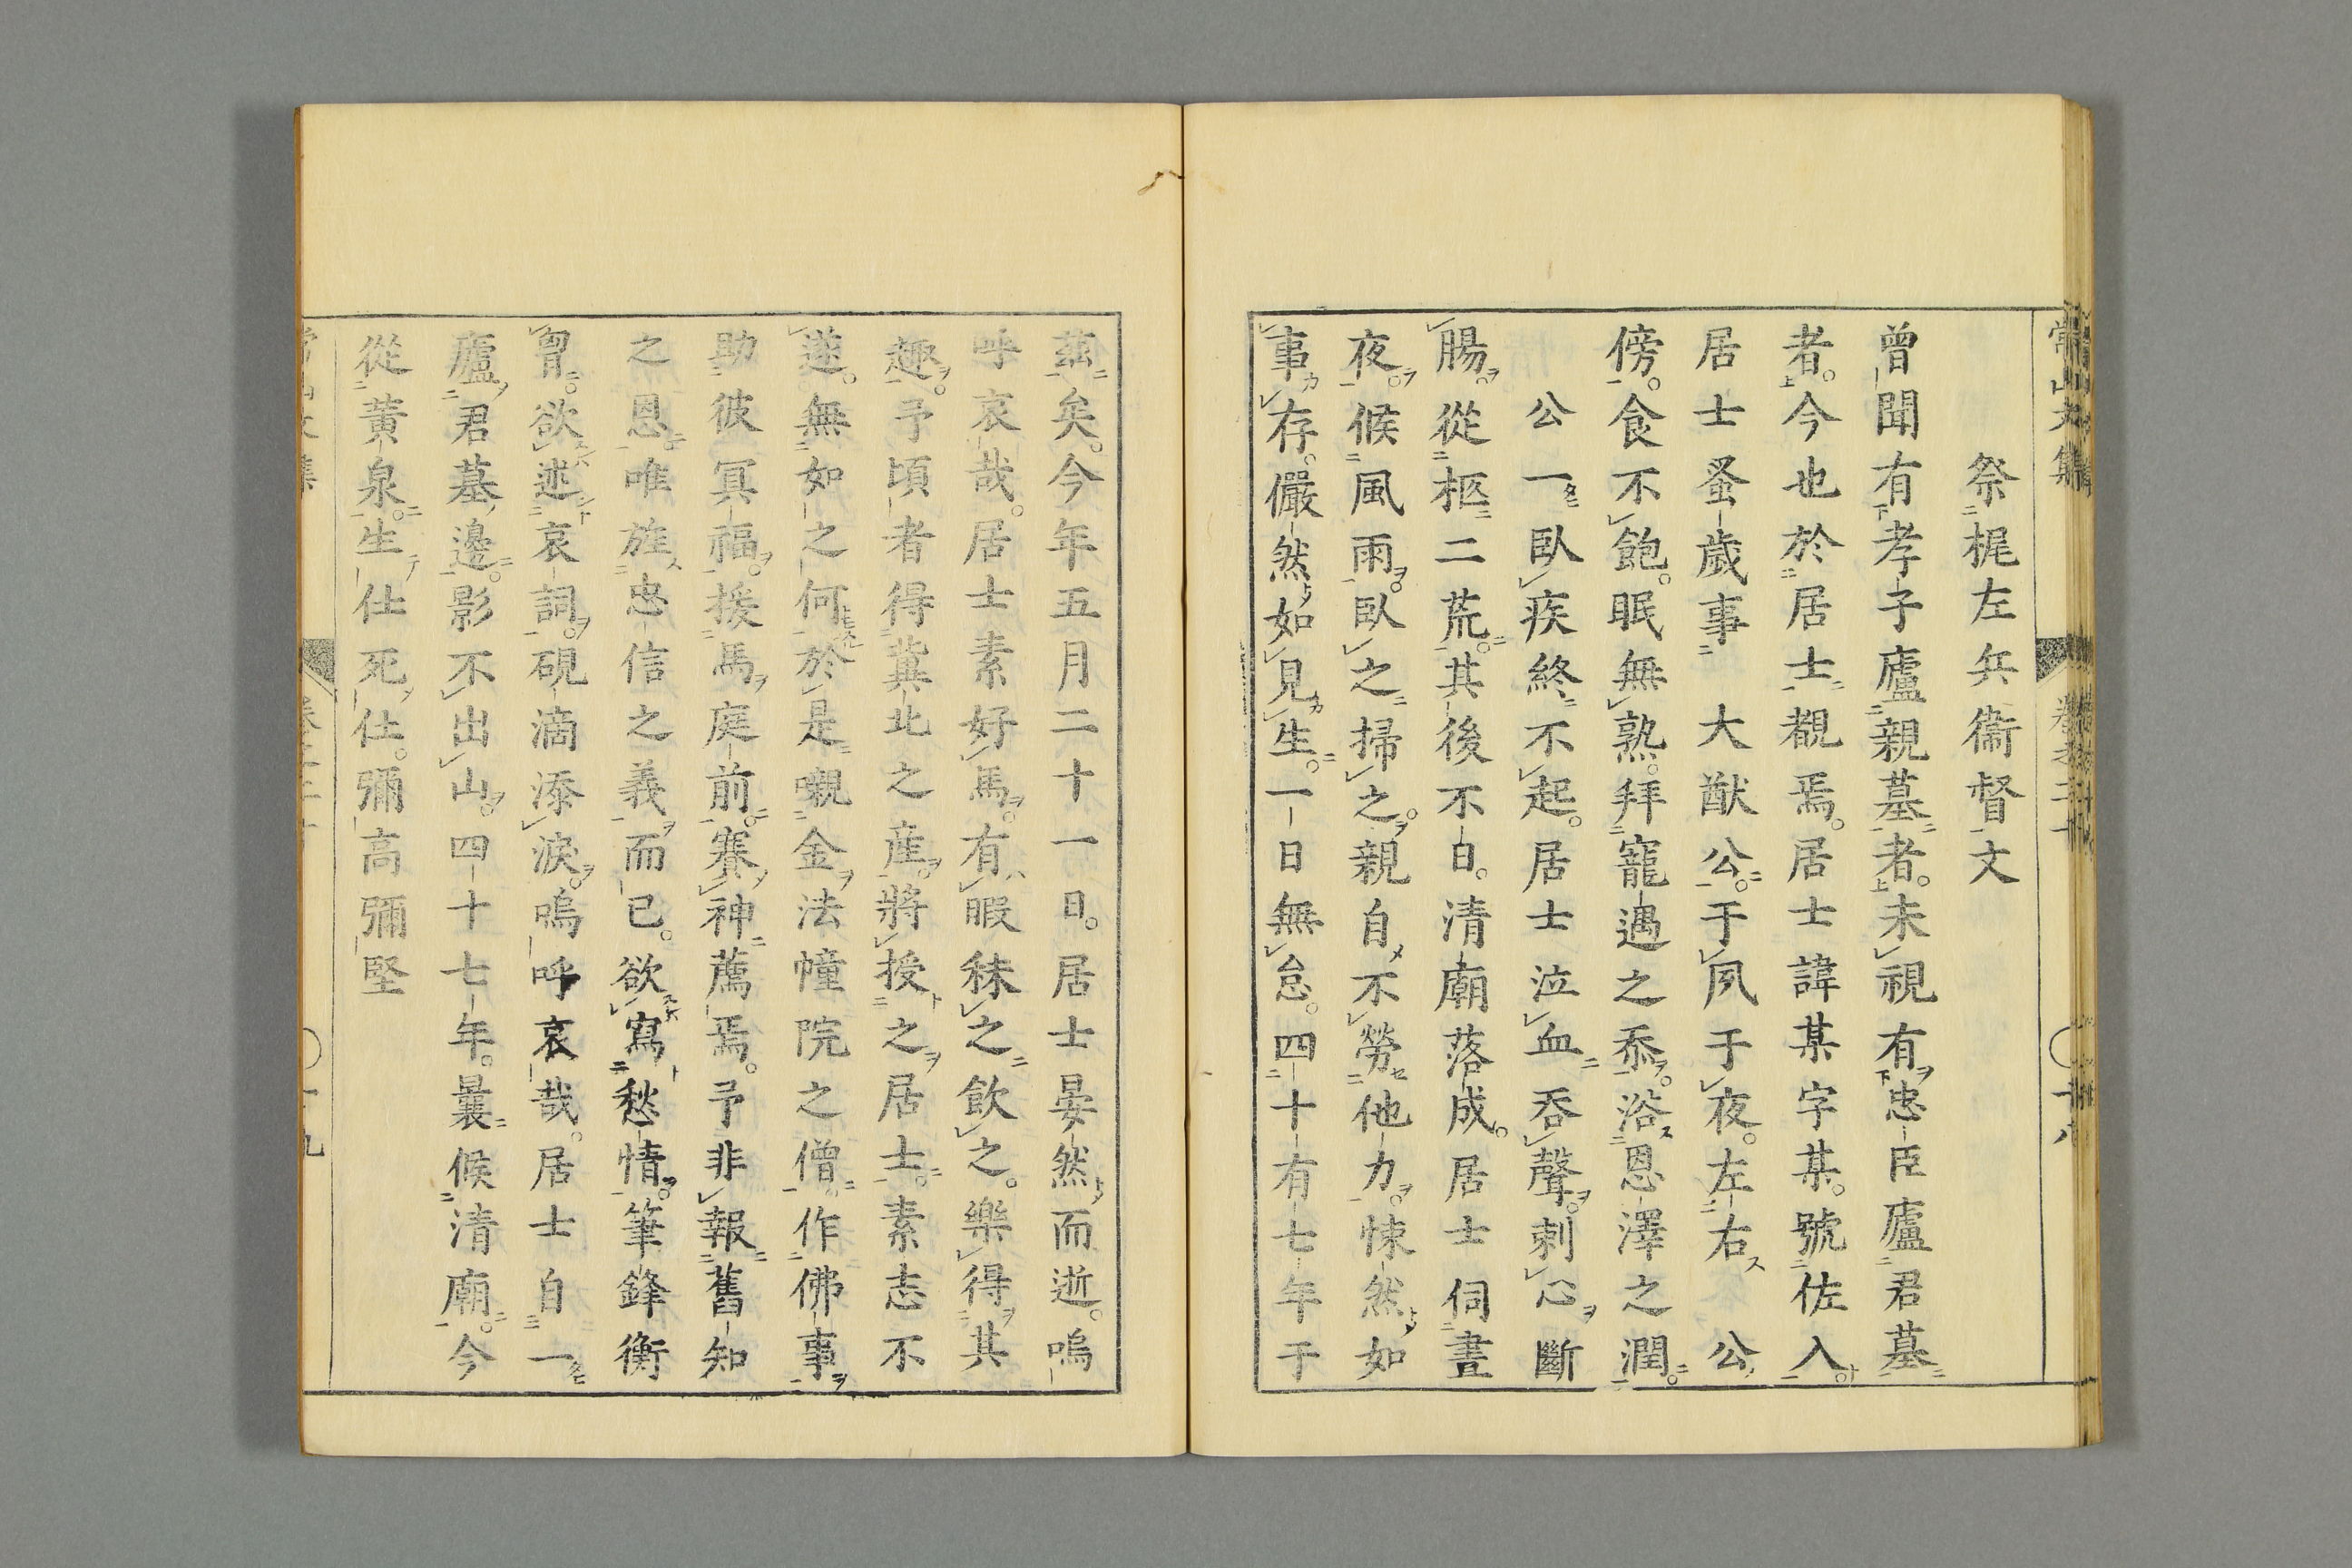 祭梶左兵衞督文
曾聞有孝子廬親墓者。未視有忠臣廬君墓
者。今也於居士覩焉。居士諱某字某。號佐入
居士蚤歲事　大猷公。于夙于夜。左右　公
傍。食不飽。眠無熟。拜寵遇之忝。浴恩澤之潤。
公一臥疾終不起。居士泣血呑聲。刺心斷
腸。從柩二荒。其後不日。清廟落成。居士伺晝
夜。候風雨。臥之掃之。親自不勞他力。悚然如
事存。儼然如見生。一日無怠。四十有七年于
茲矣。今年五月二十一日。居士晏然而逝。嗚
呼哀哉。居士素好馬。有暇秣之飲之。樂得其
趣。予頃者得冀北之産。將授之居士。素志不
遂。無如之何。於是嚫金法幢院之僧。作佛事
助彼冥福。援馬庭前。賽神薦焉。予非報舊知
之恩。唯旌忠信之義而已。欲寫愁情。筆鋒衡
胷。欲述哀詞。硯滴添淚。嗚呼哀哉。居士自一
廬君墓邊。影不出山。四十七年。曩候清廟。今
從黃泉。生仕死仕。彌高彌堅
常山文集
卷之二十
十八